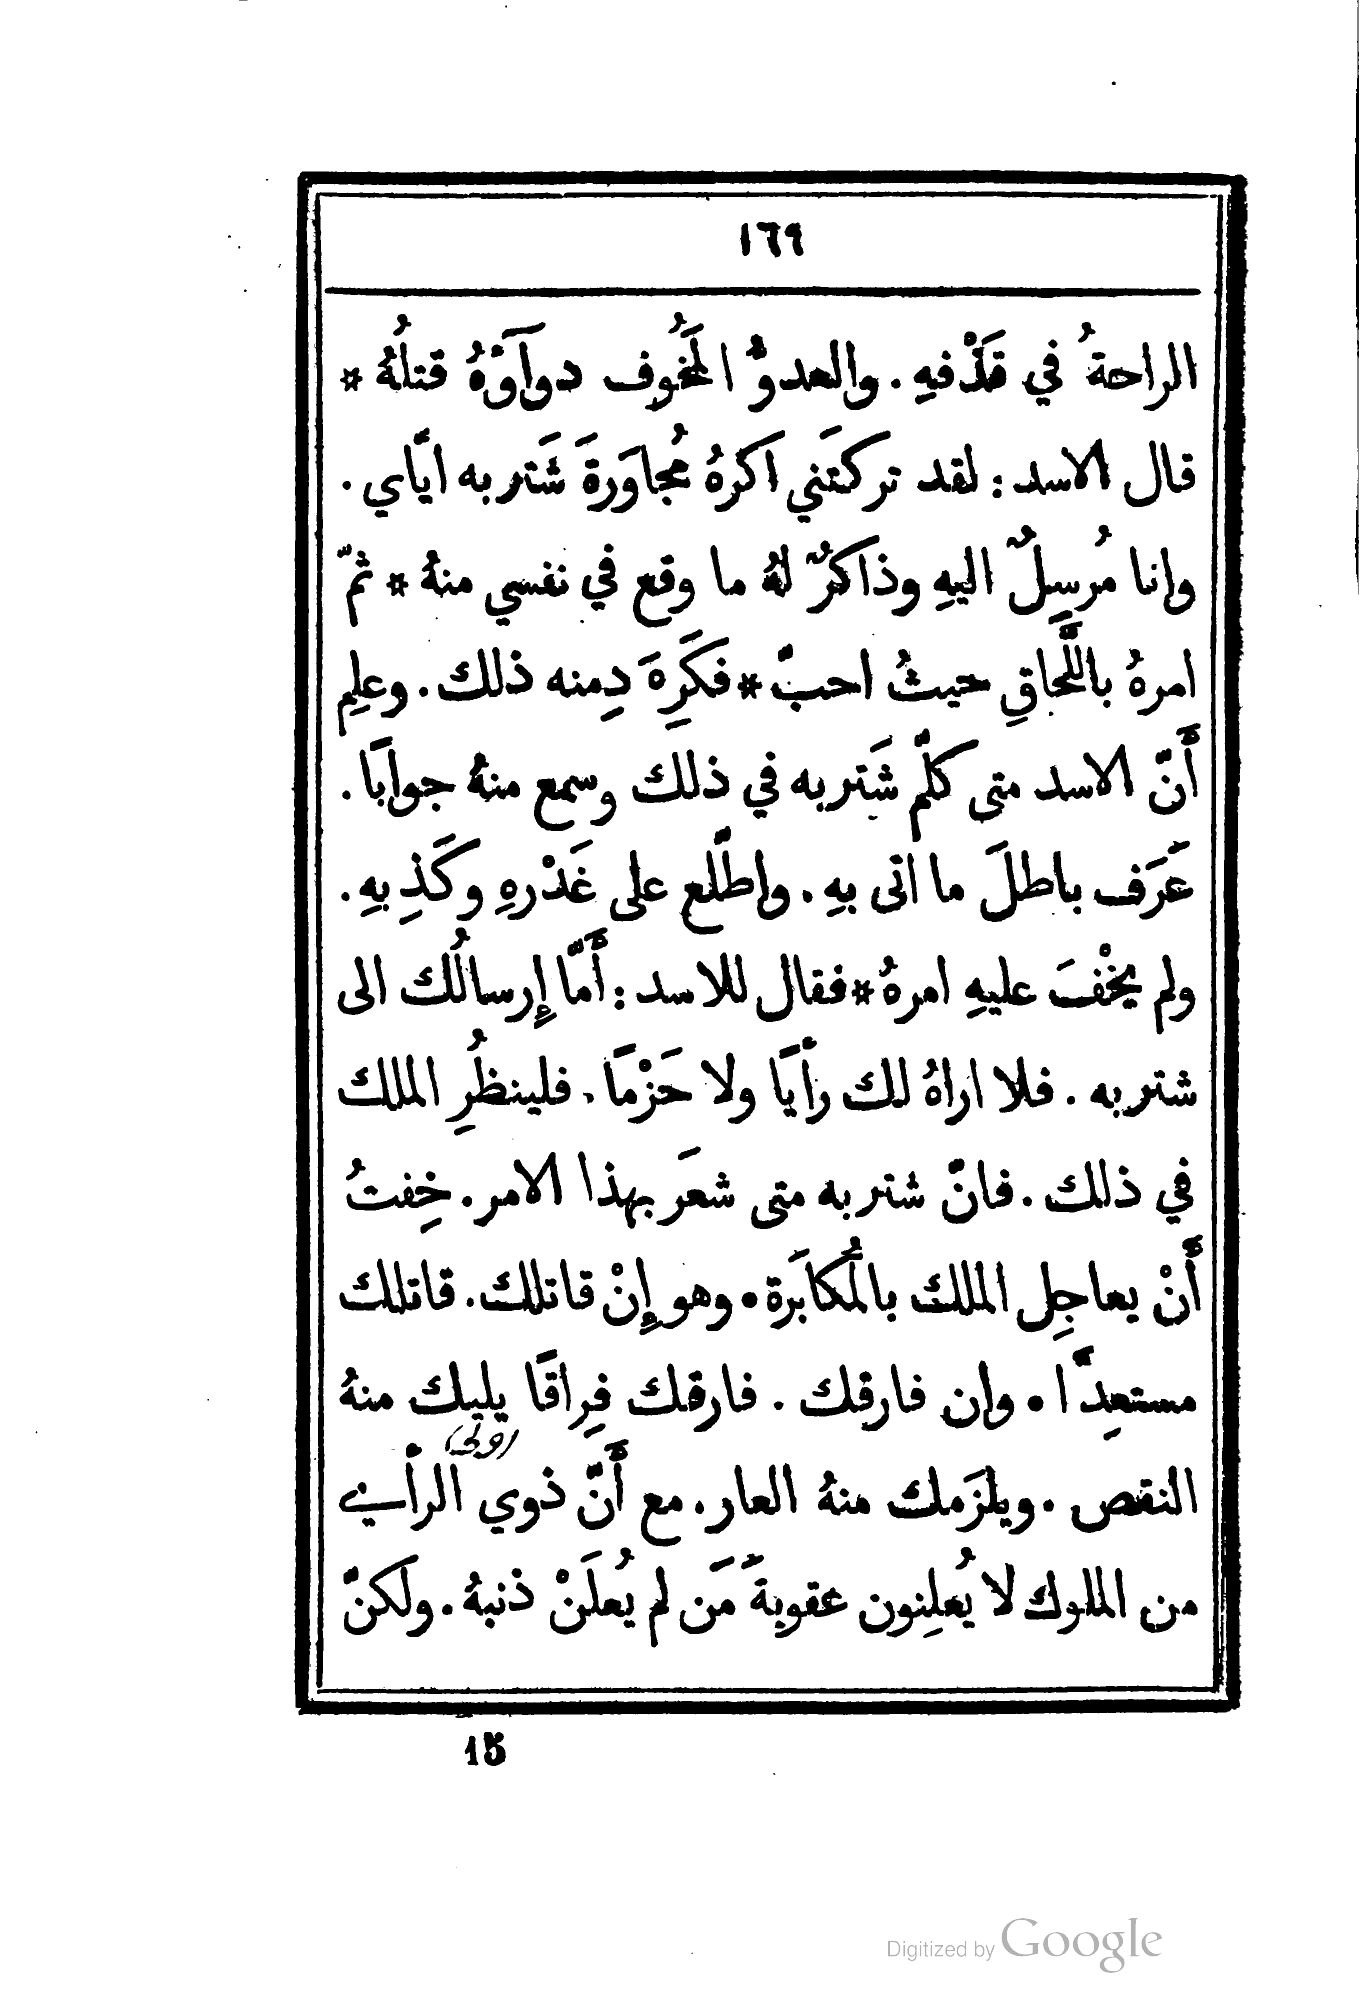 ١٦٩
الراحةُ في قَذْفهِ . والعدوُّ المَخُوف دوآؤَهُ قتلُهُ *
قال الاسد : لقد تركتَني اكرَهُ مُجاوَرةَ شَتَربه ايَّاي .
وانا مُرسِلٌ اليهِ وذاكرٌ لهُ ما وقع في نفسي منهُ * ثمّ
امرهُ باللَّحاقِ حيثُ احبّ * فكَرِهَ دِمنه ذلك . وعلِم
أَنّ الاسد متى كلّم شَتَربه في ذلك وسمع منهُ جوابًا .
عَرَف باطلَ ما اتى بهِ . واطّلع على غَدْرهِ وكَذِبهِ .
ولم يخْفَ عليهِ امرهُ * فقال للاسد : أَمّا إِرسالُك الى
شتربه . فلا اراهُ لك رأيًا ولا حَزْمًا . فلينظُرِ الملك
في ذلك . فانّ شتربه متى شعَر بهذا الامر . خِفتُ
أَنْ يعاجِل الملك بالمُكابَرة • وهو إِنْ قاتلك . قاتلك
مستعِدًّا • وان فارقك . فارقك فِراقًا يليك منهُ
(ولي)
النقص . ويلزَمك منهُ العار . مع أَنّ ذوي الرأي
من الملوك لا يُعلِنون عقوبةَ مَن لم يُعلَنْ ذنبهُ . ولكنّ
15
Digitized by Google